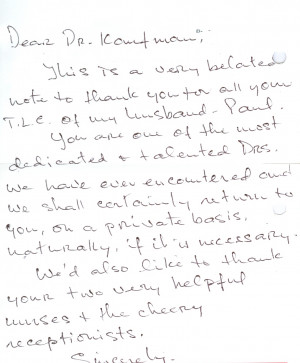 Dear Dr. Kaufman,
This is a very belated
note to thank you for all your
T.L.C. of my husband - Paul.
You are one of the most
dedicated & talented Drs.
we have ever encountered and
we shall certainly return to
you, on a private basis.
naturally, if it is necessary.
We'd also like to thank
your two very helpful
nurses & the cheery
receptionists.
Sincerely,